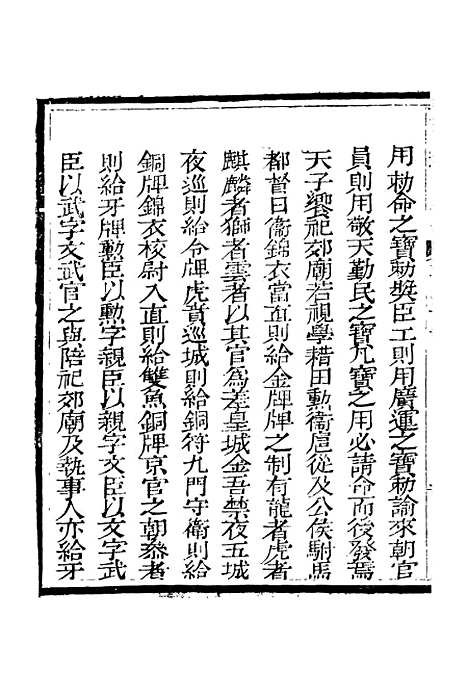 用勑命之寶勑奬臣工則用廣運之寶勑諭來朝官
員則用敬天勤民之寶凡寶之用必請命而後發焉
天子饗祀郊廟若視學耤田勳衞扈從及公侯駙馬
都督日衞錦衣當直則給金牌牌之制有龍者虎者
麒麟者獅者雲者以其官爲差皇城金吾禁夜五城
夜巡則給令牌虎賁巡城則給銅符九門守衞則給
銅牌錦衣校尉入直則給雙魚銅牌京官之朝叅者
則給牙牌勳臣以勳字親臣以親字文臣以文字武
臣以武字文武官之與陪祀郊廟及執事人亦給牙